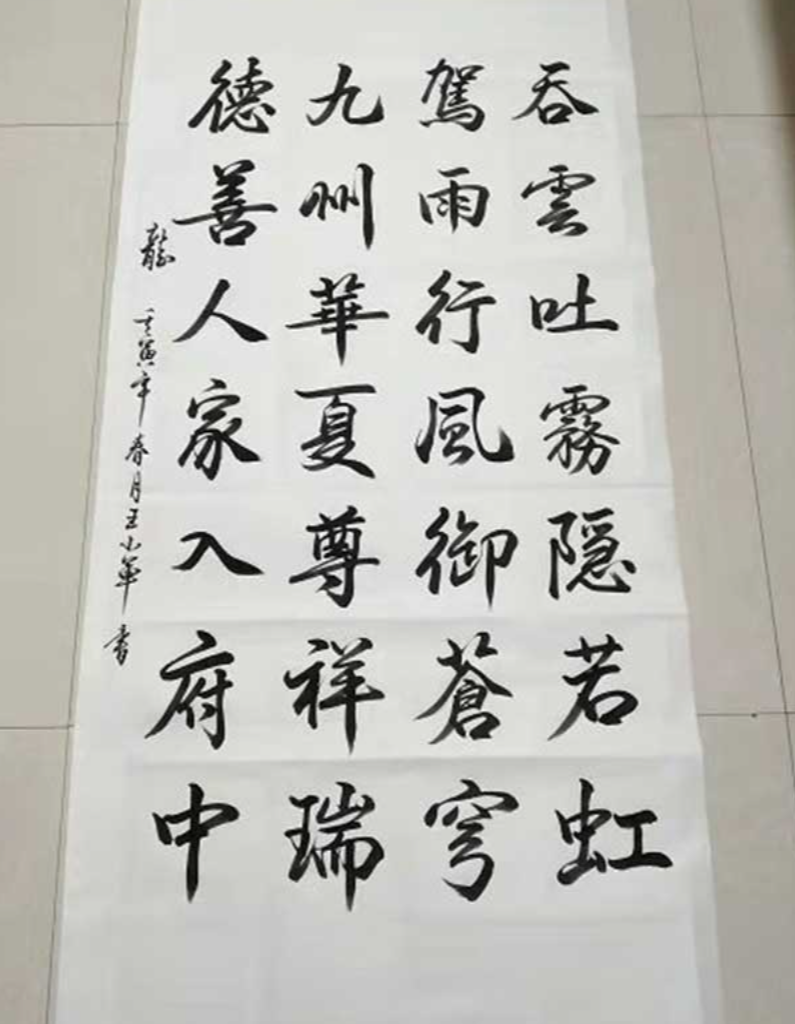 吞雲吐霧隐若虹
駕雨行風御蒼穹
九州華夏尊祥瑞
德善人家入府中
龍 壬寅年春月王小军書